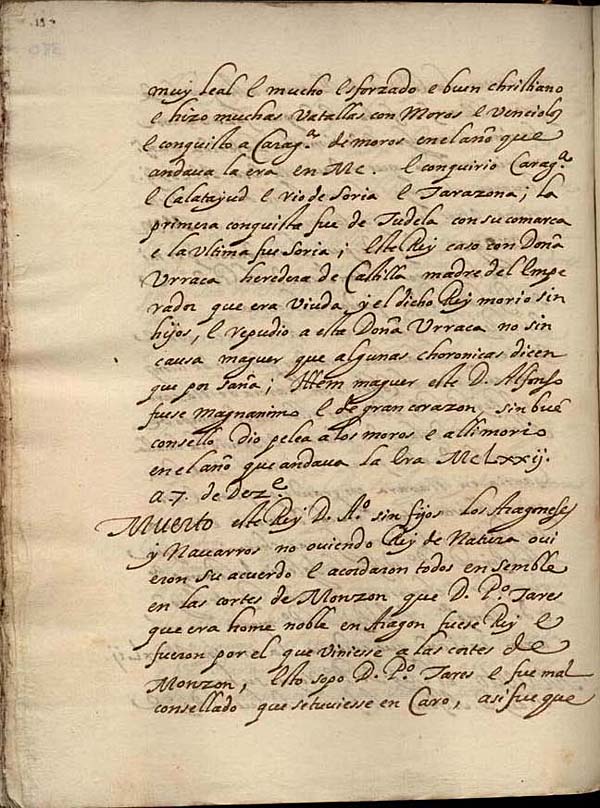 muy leal e mucho esforzado e buen christiano
e hizo muchas vatallas con Moros e venciolos
e conquisto a Carag.ª de moros en el año que
andava la era en Mc. e conquirio Carag.ª
e Calatajud e rio de Soria e Tarazona; la
primera conquista fue de Tudela con su comarca
e la ultima fue Soria; Este Rey caso con Doña
Urraca heredera de Castilla madre del Empe
rador que era viuda y el dicho Rey morio sin
hijos, e repudio a esta Doña Urraca no sin
causa maguer que algunas choronicas dicen
que por saña; Ittem maguer este D. Alfonso
fuese magnanimo e de gran corazon, sin buē
consello dio pelea a los moros e alli morio
en el año que andava la Era McLxxij.
a 7. de Dez.e
Muerto este Rey D. A.º sin fijos los Aragoneses
y Navarros no oviendo Rey de Natura ovi
eron su acuerdo e acordaron todos ensemble
en las cortes de Monzon que D. P.º Tares
que era home noble en Aragon fuese Rey e
fueron por el que viniesse a las cortes de
Monzon, Esto sopo D. P.º Tares e fue mal
consellado que setuviesse en Caro, asi fue que